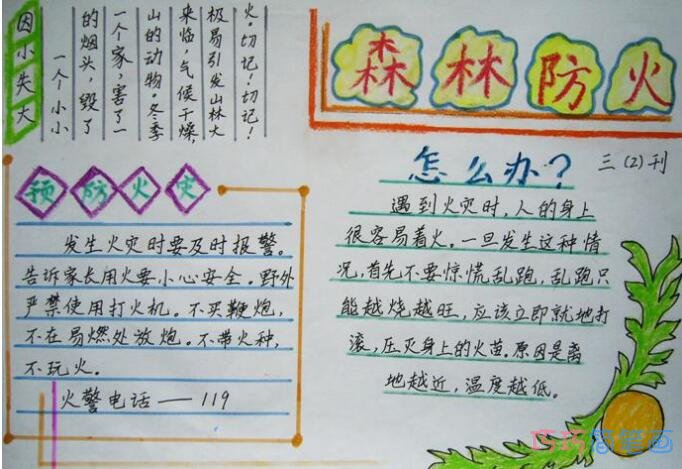 森林防火
三(2)刊
因小失大
一个小小
的烟头，毁了
一个家，害了一
山的动物。冬季
来临，气候干燥，
极易引发山林大
火。切记！切记！
预防火灾
发生火灾时要及时报警。
告诉家长用火要小心安全。野外
严禁使用打火机。不买鞭炮，
不在易燃处放炮。不带火种，
不玩火。
火警电话——119
怎么办？
遇到火灾时，人的身上
很容易着火。一旦发生这种情
况，首先不要惊慌乱跑，乱跑只
能越烧越旺，应该立即就地打
滚，压灭身上的火苗。原因是离
地越近，温度越低。
巧巧简笔画